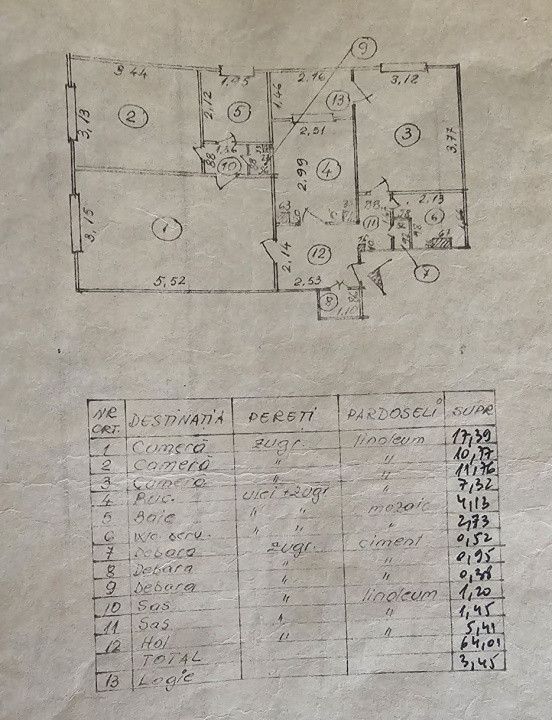 9
3,44
1,95
2,16
3,12
2,12
1,46
13
3,13
2
5
2,31
3
3,77
1,36
88
10
88
4
2,99
3,15
1
88
2,13
11
6
12
2,14
5,52
2,53
7
8
1,10
NR CRT. DESTINAȚIA PEREȚI PARDOSELI SUPR
1 Cameră zugr. linoleum 17,39
2 Cameră " " 10,77
3 Cameră " " 11,76
4 Buc. ulei + zugr " 7,32
5 Baie " " mozaic 4,13
6 Wc serv. " " " 2,73
7 Debara zugr. ciment 0,52
8 Debara " " 0,95
9 Debara " " 0,38
10 Sas " linoleum 1,20
11 Sas " " 1,45
12 Hol " " 5,41
TOTAL 64,01
13 Logie 3,45